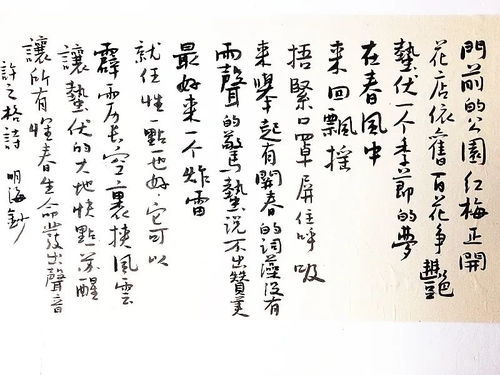 門前的公園红梅正開
花店依舊百花争艷
蟄伏一个季節的夢
在春風中
来回飄摇
捂緊口罩屏住呼吸
来舉起有關春的詞藻没有
雨聲的驚蟄説不出贊美
最好来一个炸雷
就任性一點也好，它可以
霹靂長空裹挾風雲
讓蟄伏的大地快點苏醒
讓所有惺春生命發出聲音
許之格詩 明海鈔